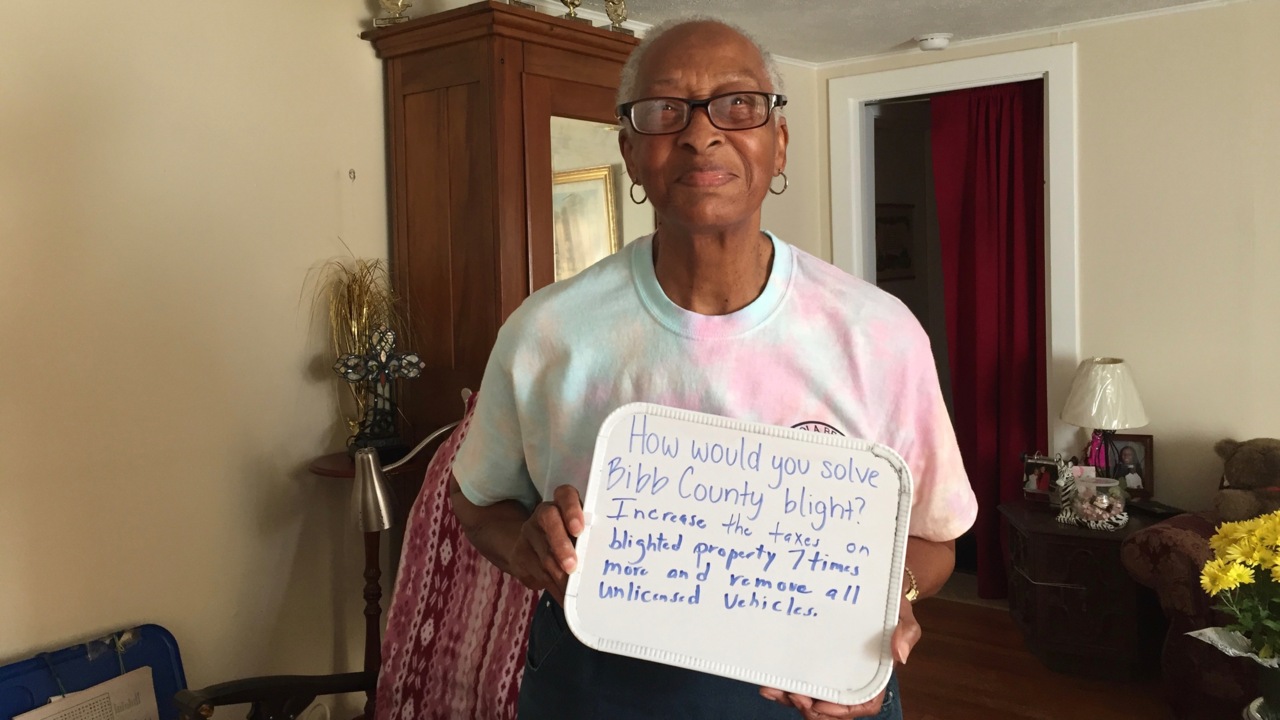 How would you solve
Bibb County blight?
Increase the taxes on
blighted property 7 times
more and remove all
unlicensed vehicles.